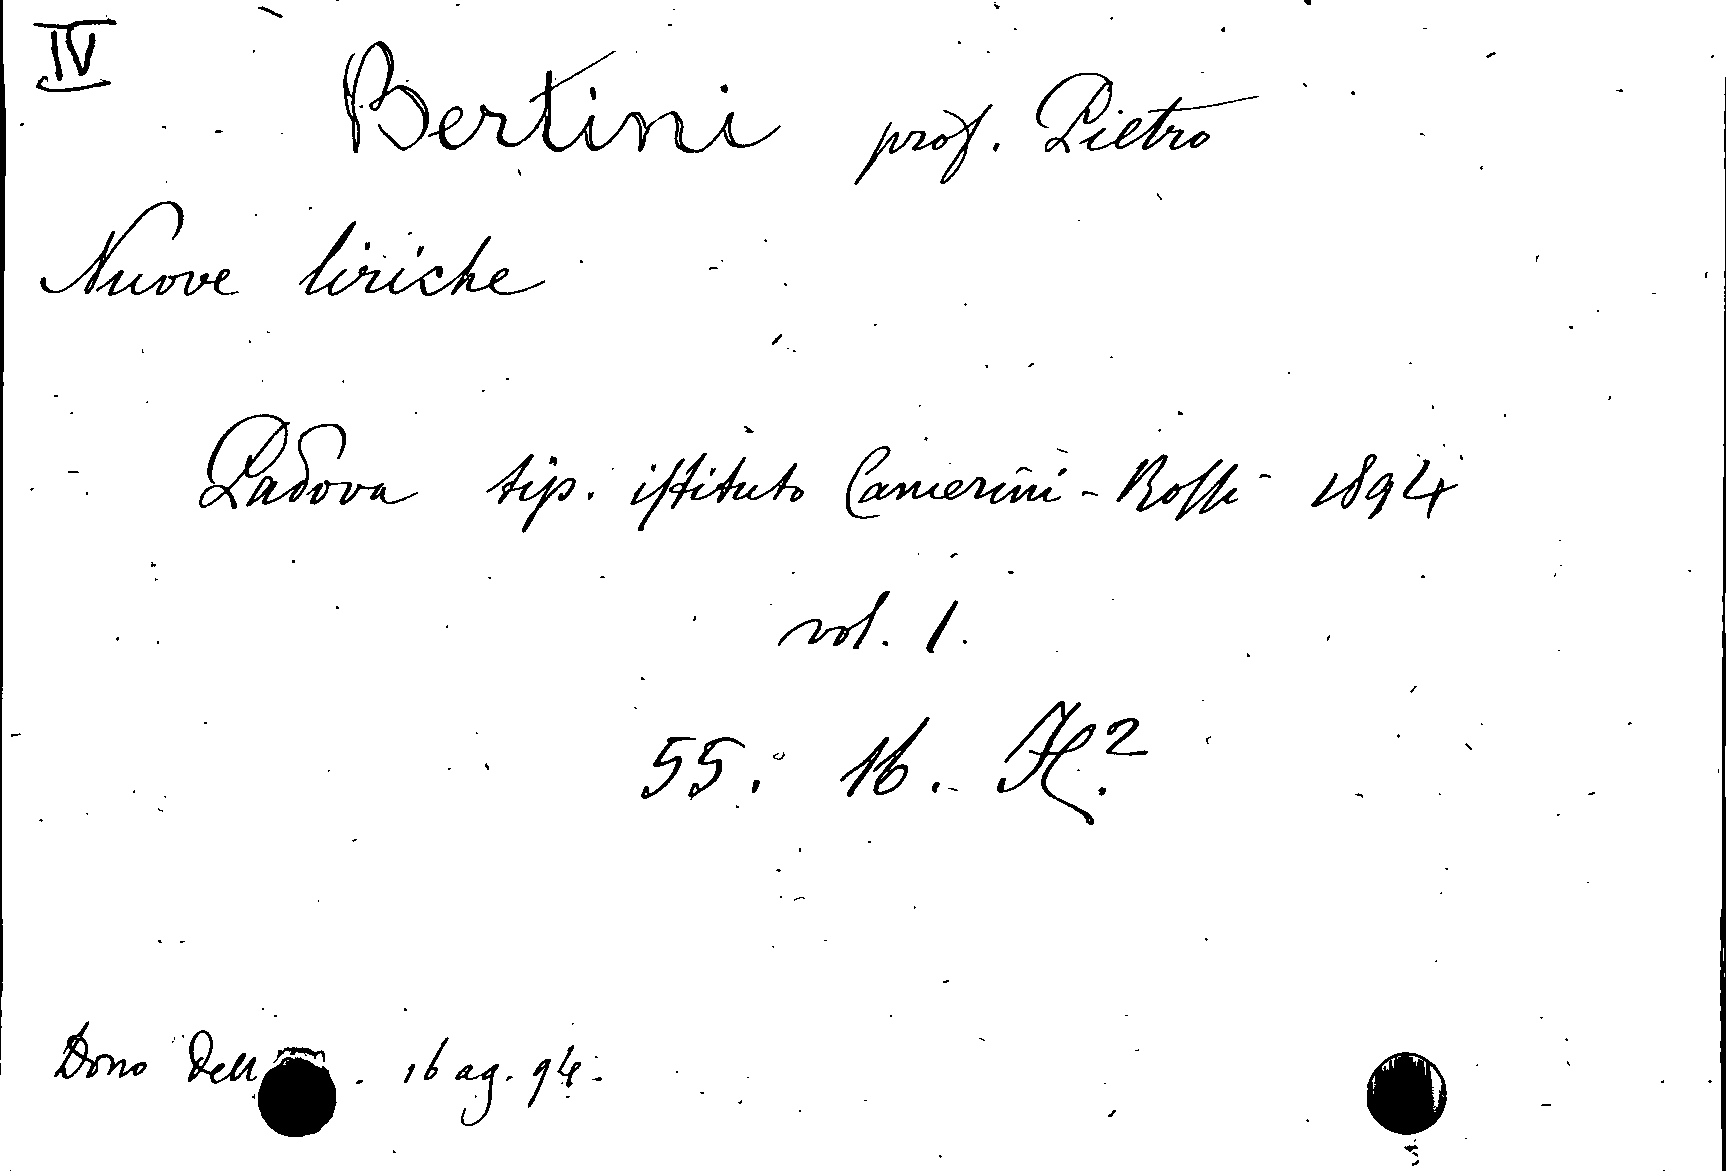 IV
Bertini prof. Pietro
Nuove liriche
Padova tip. istituto Camerini-Rossi 1894
vol. 1.
55. 16. H².
Dono dell . 16 ag. 94.